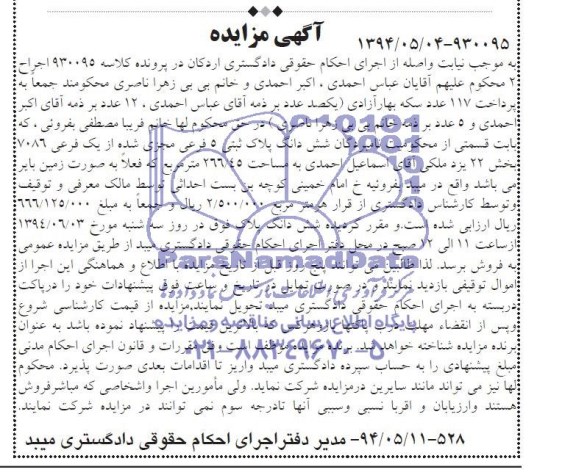 آگهی مزایده
۹۳۰۰۹۵-۱۳۹۴/۰۵/۰۴
به موجب نیابت واصله از اجرای احکام حقوقی دادگستری اردکان در پرونده کلاسه ۹۳۰۰۹۵ اجراح
۲ محکوم علیهم آقایان عباس احمدی ، اکبر احمدی و خانم بی بی زهرا ناصری محکومند جمعاً به
پرداخت ۱۱۷ عدد سکه بهارآزادی (یکصد عدد بر ذمه آقای عباس احمدی ، ۱۲ عدد بر ذمه آقای اکبر
احمدی و ۵ عدد بر ذمه خانم بی بی زهرا ناصری ) در حق محکوم لها خانم فریبا مصطفی بفروئی ، که
بابت قسمتی از محکومیت نامبردگان شش دانگ پلاک ثبتی ۵ فرعی مجزی شده از یک فرعی ۷۰۸۶
بخش ۲۲ یزد ملکی آقای اسماعیل احمدی به مساحت ۲۶۶/۴۵ مترمربع که فعلاً به صورت زمین بایر
می باشد واقع در میبد بفروئیه خ امام خمینی کوچه بن بست احداثی توسط مالک معرفی و توقیف
وتوسط کارشناس دادگستری از قرار هرمتر مربع ۲/۵۰۰/۰۰۰ ریال و جمعاً به مبلغ ۶۶۶/۱۲۵/۰۰۰
ریال ارزیابی شده است.و مقرر گردیده شش دانگ پلاک فوق در روز سه شنبه مورخ ۱۳۹۴/۰۶/۰۳
ازساعت ۱۱ الی ۱۲ صبح در محل دفتر اجرای احکام حقوقی دادگستری میبد از طریق مزایده عمومی
به فروش برسد. لذا طالبین می توانند پنج روز قبل از تاریخ مزایده با اطلاع و هماهنگی این اجرا از
اموال توقیفی بازدید نمایند و در صورت تمایل در تاریخ و ساعت فوق پیشنهادات خود را درپاکت
دربسته به اجرای احکام حقوقی دادگستری میبد تحویل نمایند.مزایده از قیمت کارشناسی شروع
وپس از انقضاء مهلت قیمت پیشنهاد نموده باشد به عنوان
برنده مزایده شناخته خواهد شد. برنده مزایده موظف است وفق مقررات و قانون اجرای احکام مدنی
مبلغ پیشنهادی را به حساب سپرده دادگستری میبد واریز تا اقدامات بعدی صورت پذیرد. محکوم
لها نیز می تواند مانند سایرین درمزایده شرکت نماید. ولی مأمورین اجرا واشخاصی که مباشرفروش
هستند وارزیابان و اقربا نسبی وسببی آنها تادرجه سوم نمی توانند در مزایده شرکت نمایند.
۵۲۸-۹۴/۰۵/۱۱- مدیر دفتراجرای احکام حقوقی دادگستری میبد
ParsNamadData
پایگاه اطلاع رسانی مناقصه و مزایده
۰۲۱-۸۸۳۴۹۶۷۰-۵